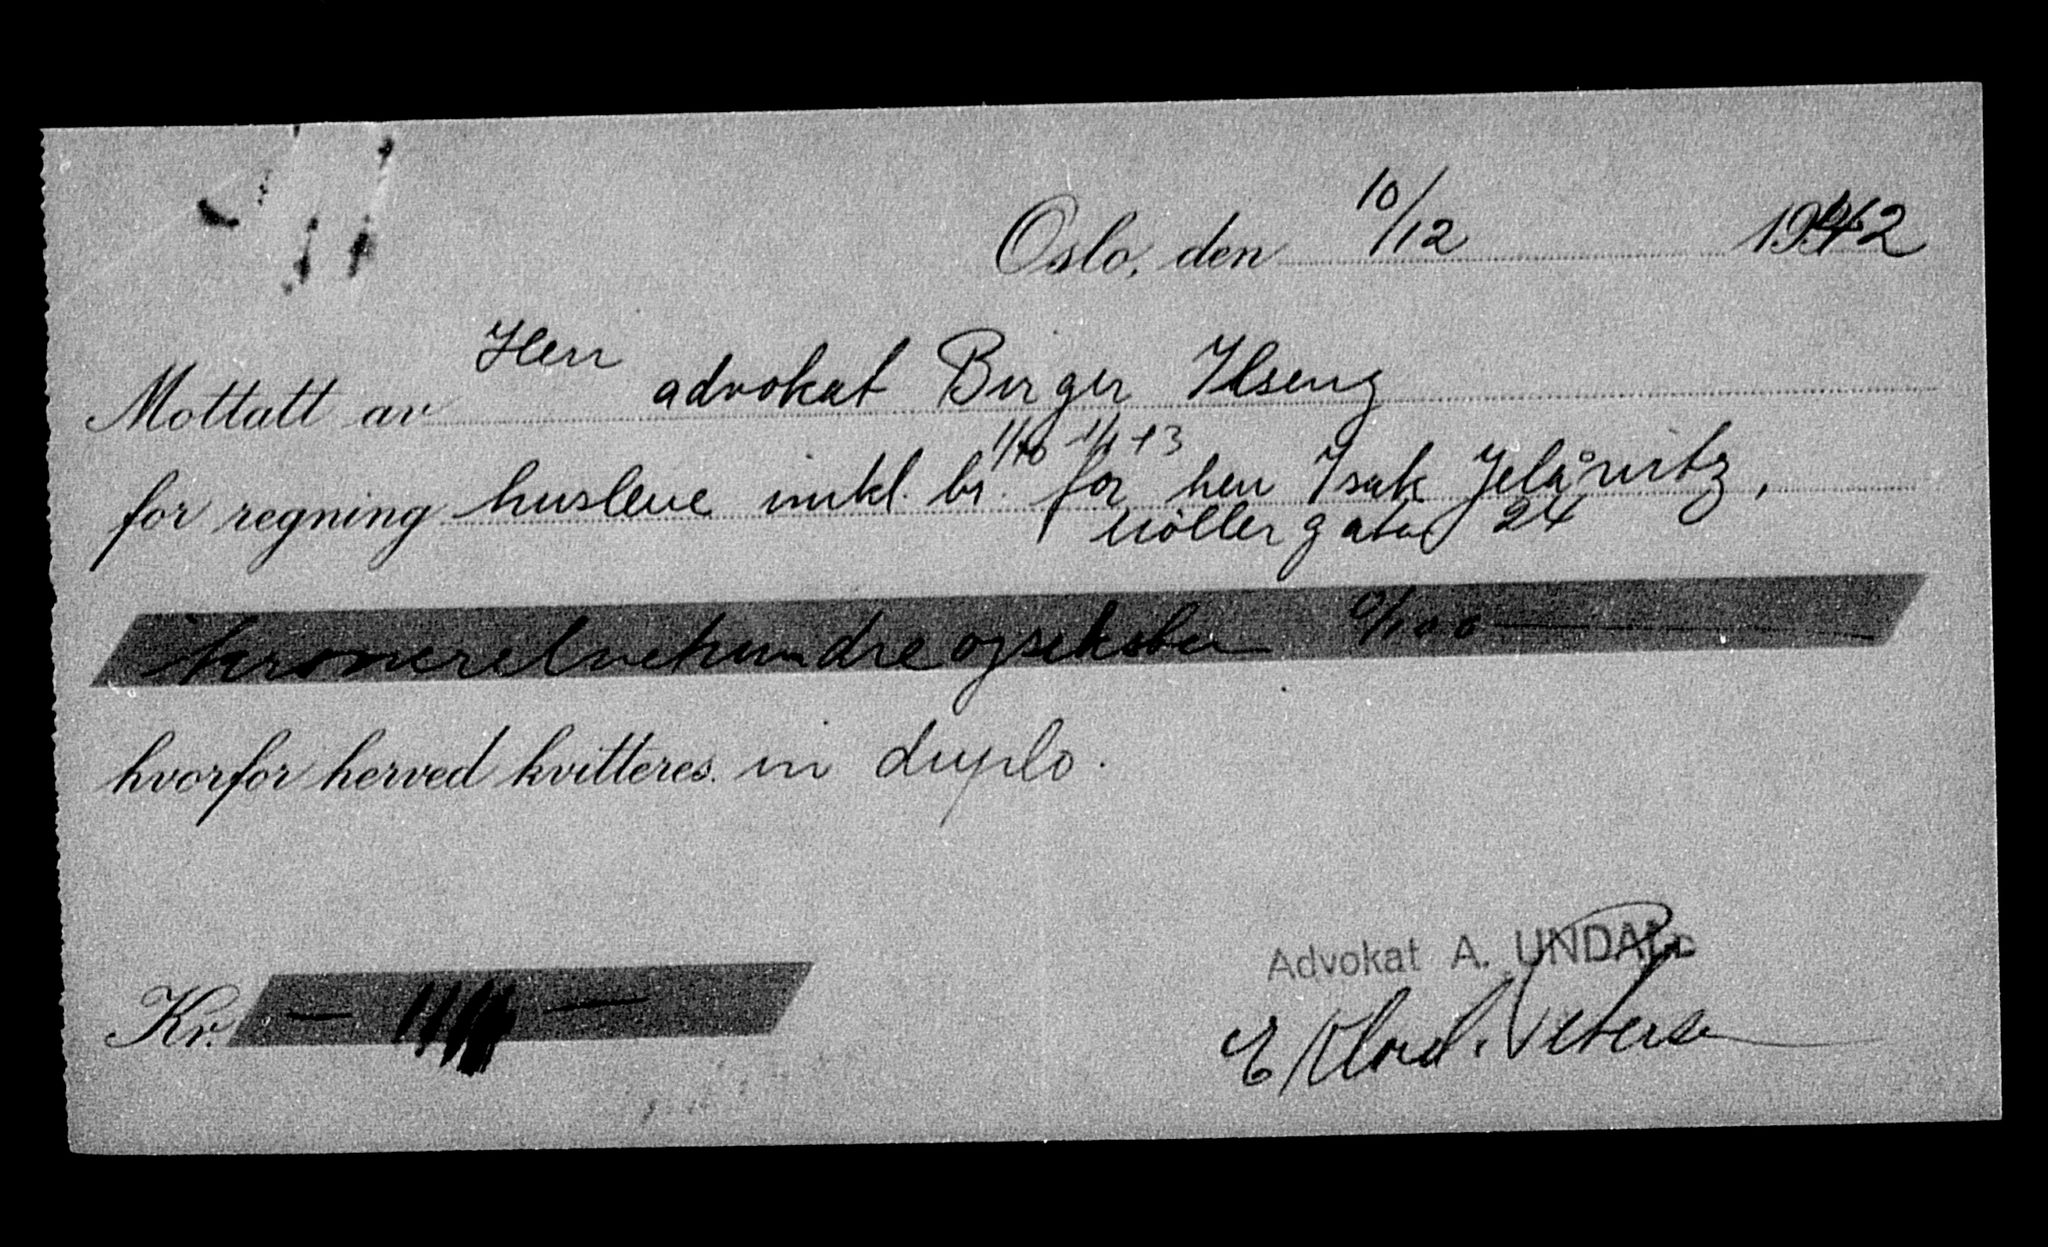 Oslo, den 10/12 1942
Herr
Mottatt av advokat Birger Ilseng
1/10 - 1/1 43
for regning husleie inkl. br. for herr Isak Jelåwitz,
Möllergaten 24
kroner elvehundre og seksten 0/100
hvorfor herved kvitteres in duplo.
Kr. — —
Advokat A. UNDAL
E